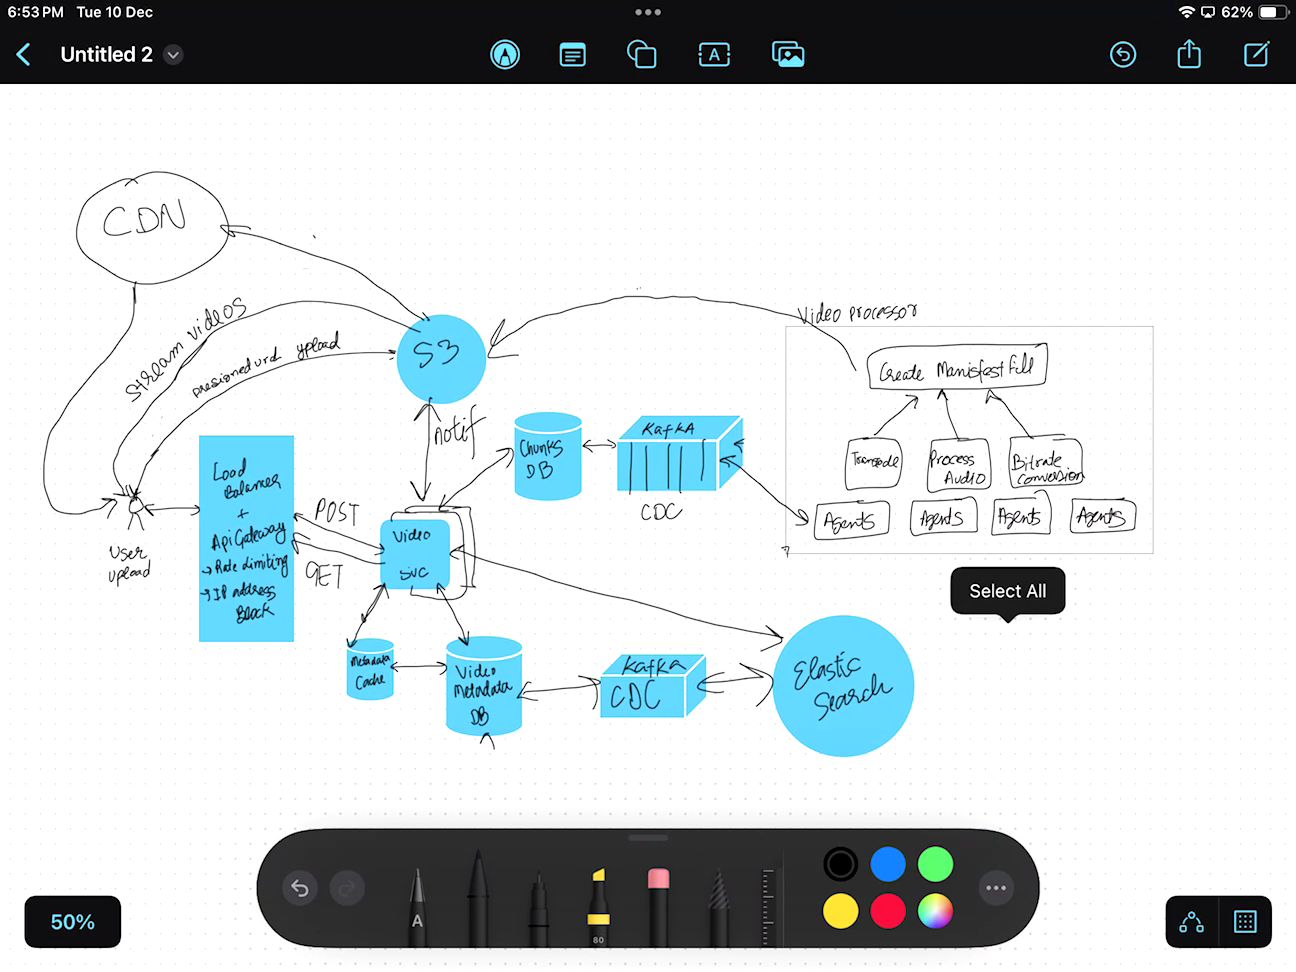 6:53 PM Tue 10 Dec
62%
Untitled 2
A
CDN
Stream videos
presignedurl upload
S3
notif
Video processor
Create Manisfest File
Transcode
Process
Audio
Bitrate
conversion
Agents
Agents
Agents
Agents
Chunks
DB
KafkA
CDC
Load
Balancer
+
Api Gateway
→ Rate limiting
→ IP address
Block
User
upload
POST
GET
Video
svc
Metadata
Cache
Video
Metadata
DB
Kafka
CDC
Elastic
Search
Select All
50%
A
80